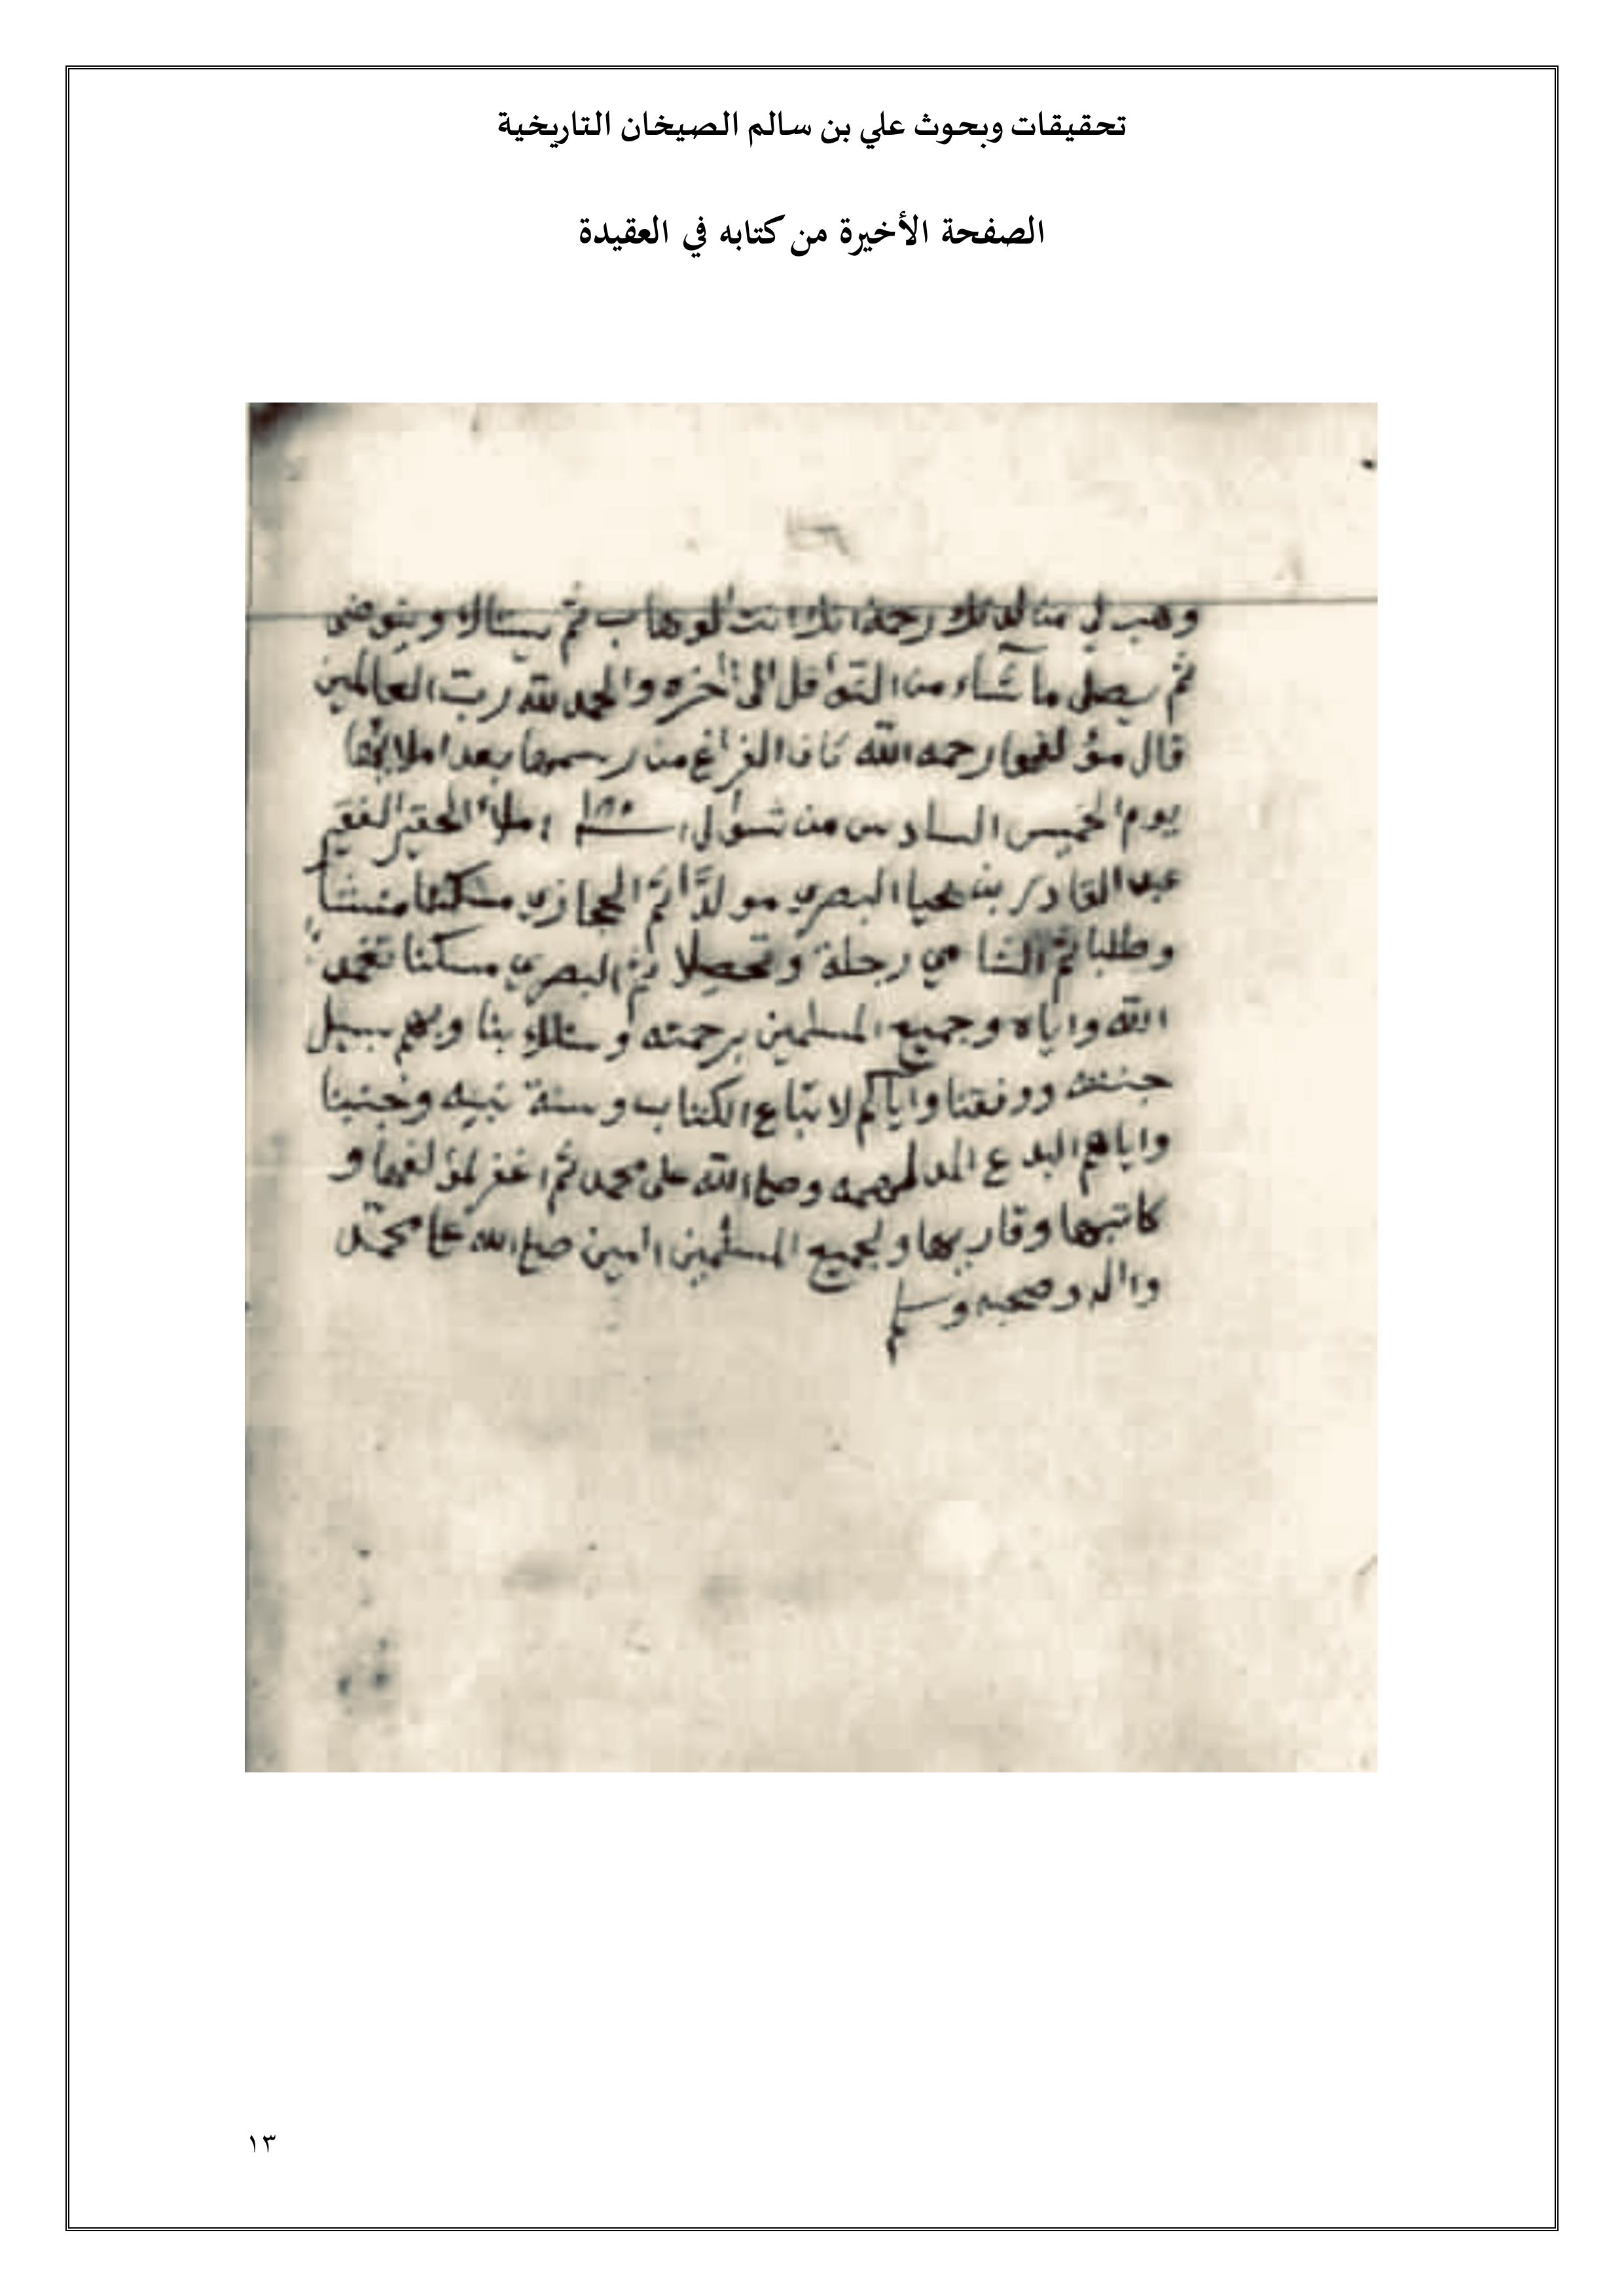 تحقيقات وبحوث علي بن سالم الصيخان التاريخية
الصفحة الأخيرة من كتابه في العقيدة
وهب لي من لدنك رحمة انك انت الوهاب ثم يستاك ويتوضى
ثم يصلى ما شاء من النوافل الى اخره والحمد لله رب العالمين
قال مؤلفها رحمه الله كان الفراغ من رسمها بعد املائها
يوم الخميس السادس من شوال املاء الحقير الفقير
عبد القادر بن يحيا البصري مولدا ثم الحجازي مسكنا منشا
وطلبا ثم الشامي رحلة وتحصيلا ثم البصري مسكنا تغمد
الله واياه وجميع المسلمين برحمته وسلك بنا وبهم سبيل
جنته ووفقنا واياكم لاتباع الكتاب وسنة نبيه وجنبنا
واياهم البدع المدلهمه وصلى الله على محمد ثم اغفر لمؤلفها و
كاتبها وقاريها ولجميع المسلمين امين صلى الله على محمد
واله وصحبه وسلم
١٣